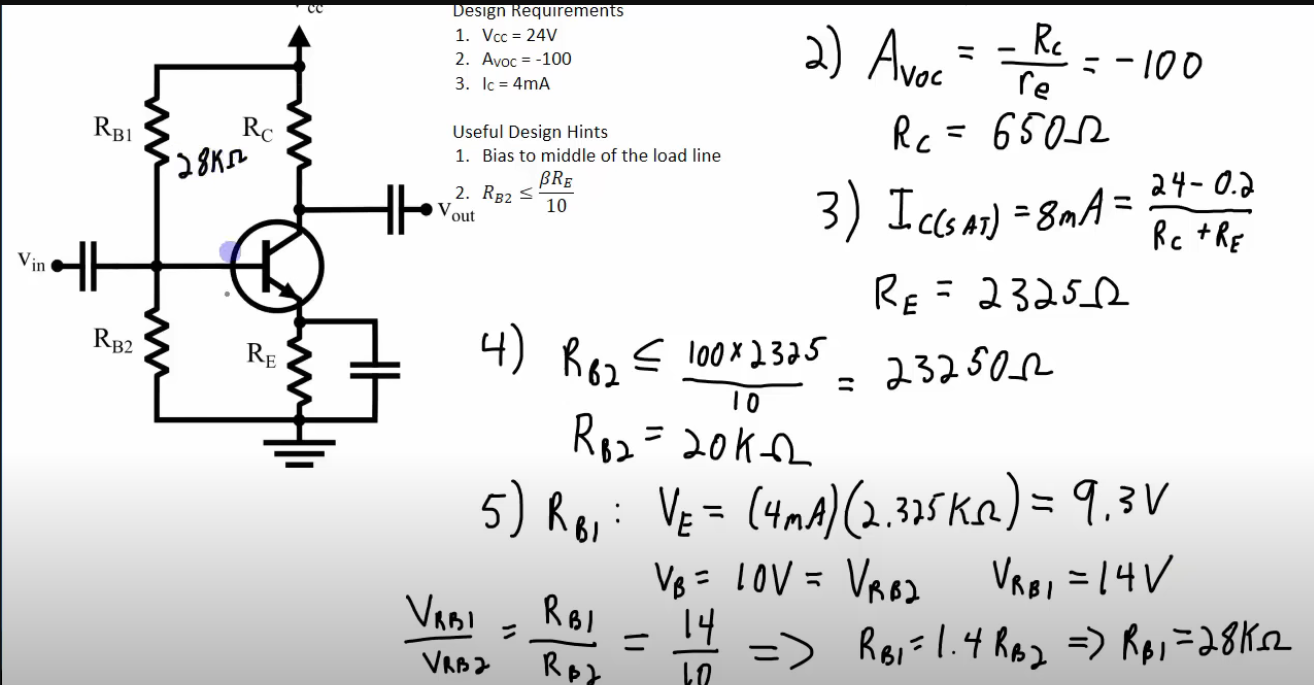 cc
RB1
28KΩ
RC
Vout
Vin
RB2
RE
Design Requirements
1. Vcc = 24V
2. Avoc = -100
3. Ic = 4mA
Useful Design Hints
1. Bias to middle of the load line
2. RB2 ≤ βRE / 10
2) Avoc = - Rc / re = -100
Rc = 650Ω
3) Ic(SAT) = 8mA = 24 - 0.2 / Rc + RE
RE = 2325Ω
4) RB2 ≤ 100 x 2325 / 10 = 23250Ω
RB2 = 20KΩ
5) RB1: VE = (4mA)(2.325KΩ) = 9.3V
VB = 10V = VRB2 VRB1 = 14V
VRB1 / VRB2 = RB1 / RB2 = 14 / 10 => RB1 = 1.4 RB2 => RB1 = 28KΩ